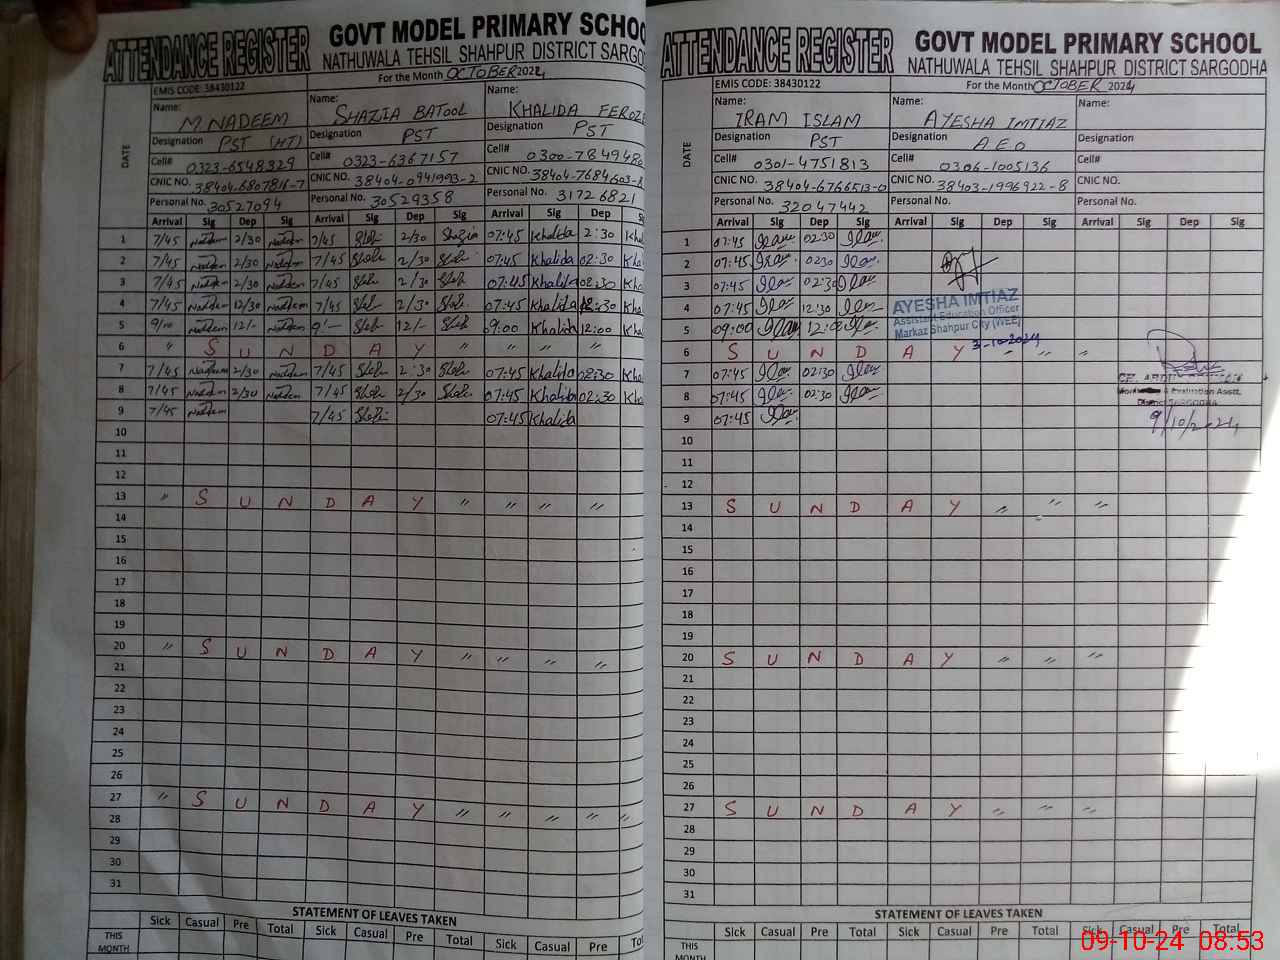 ATTENDANCE REGISTER GOVT MODEL PRIMARY SCHOO
NATHUWALA TEHSIL SHAHPUR DISTRICT SARGO
For the Month OCTOBER 2024
EMIS CODE: 38430122
Name: M.NADEEM Name: SHAZIA BATOOL Name: KHALIDA FEROZE
Designation PST (HT) Designation PST Designation PST
Cell# 0323-6548329 Cell# 0323-6367157 Cell# 0300-784948
CNIC NO. 38404-6807816-7 CNIC NO. 38404-0941903-2 CNIC NO. 38404-7684603-8
Personal No. 30527094 Personal No. 30529358 Personal No. 31726821
DATE Arrival Sig Dep Sig Arrival Sig Dep Sig Arrival Sig Dep
1 7/45 Nadeem 2/30 Nadeem 7/45 2/30 Shazia 07:45 Khalida 2:30 Kha
2 7/45 Nadeem 2/30 Nadeem 7/45 2/30 07:45 Khalida 02:30 Kha
3 7/45 Nadeem 2/30 Nadeem 7/45 2/30 07:45 Khalida 02:30 Kha
4 7/45 Nadeem 12/30 Nadeem 7/45 2/30 07:45 Khalida 12:30 Kha
5 9/00 Nadeem 12/- Nadeem 9/- 12/- 09:00 Khalida 12:00 Kha
6 " S U N D A Y " " "
7 7/45 Nadeem 2/30 Nadeem 7/45 2:30 07:45 Khalida 02:30 Kha
8 7/45 Nadeem 2/30 Nadeem 7/45 2/30 07:45 Khalida 02:30 Kha
9 7/45 Nadeem 7/45 07:45 Khalida
10
11
12
13 " S U N D A Y " " " "
14
15
16
17
18
19
20 " S U N D A Y " " " "
21
22
23
24
25
26
27 " S U N D A Y " " " " "
28
29
30
31
STATEMENT OF LEAVES TAKEN
THIS MONTH Sick Casual Pre Total Sick Casual Pre Total Sick Casual Pre Tot
ATTENDANCE REGISTER GOVT MODEL PRIMARY SCHOOL
NATHUWALA TEHSIL SHAHPUR DISTRICT SARGODHA
EMIS CODE: 38430122 For the Month OCTOBER 2024
Name: IRAM ISLAM Name: AYESHA IMTIAZ Name:
Designation PST Designation A.E.O Designation
Cell# 0301-4751813 Cell# 0306-1005136 Cell#
CNIC NO. 38404-6766513-0 CNIC NO. 38403-1996922-8 CNIC NO.
Personal No. 32047442 Personal No. Personal No.
DATE Arrival Sig Dep Sig Arrival Sig Dep Sig Arrival Sig Dep Sig
1 07:45 02:30
2 07:45 02:30
3 07:45 02:30
AYESHA IMTIAZ
4 07:45 12:30
Assistant Education Officer
5 09:00 12:00
Markaz Shahpur City (WEE)
3-10-2024
6 S U N D A Y " " "
7 07:45 02:30
8 07:45 02:30
Evaluation Asstt.
District SARGODHA
9 07:45
9/10/2024
10
11
12
13 S U N D A Y " " "
14
15
16
17
18
19
20 S U N D A Y " " "
21
22
23
24
25
26
27 S U N D A Y " " "
28
29
30
31
STATEMENT OF LEAVES TAKEN
THIS MONTH Sick Casual Pre Total Sick Casual Pre Total Sick Casual Pre Total
09-10-24 08:53